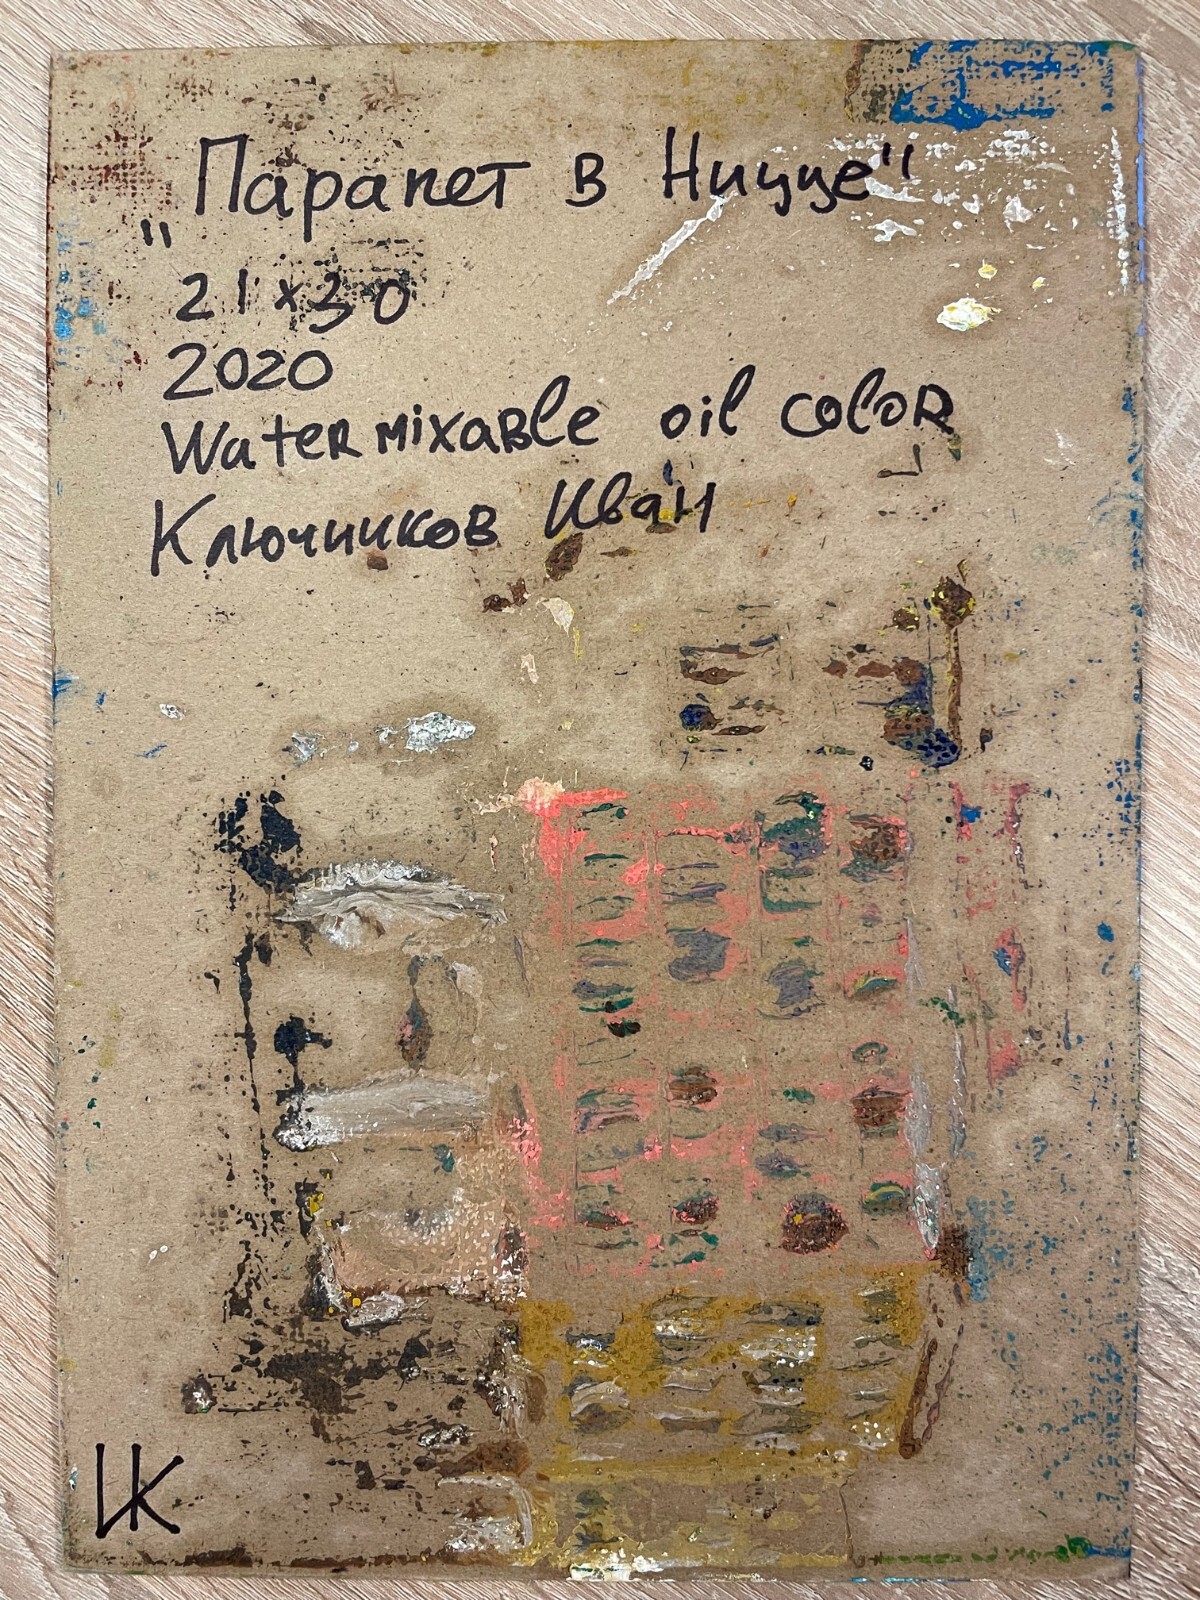 "Парапет в Ницце"
21x30
2020
Water mixable oil color
Ключников Иван
ИК